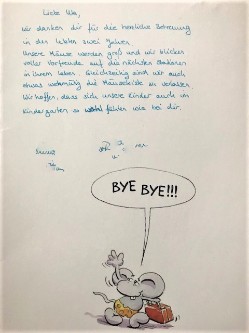 Liebe Ula,
wir danken dir für die herzliche Betreuung
in den letzten zwei Jahren.
Unsere Mäuse werden groß und wir blicken
voller Vorfreude auf die nächsten Stationen
in ihrem Leben. Gleichzeitig sind wir auch
etwas wehmütig die Mäusekiste zu verlassen.
Wir hoffen, dass sich unsere Kinder auch im
Kindergarten so wohl fühlen wie bei dir.
BYE BYE!!!